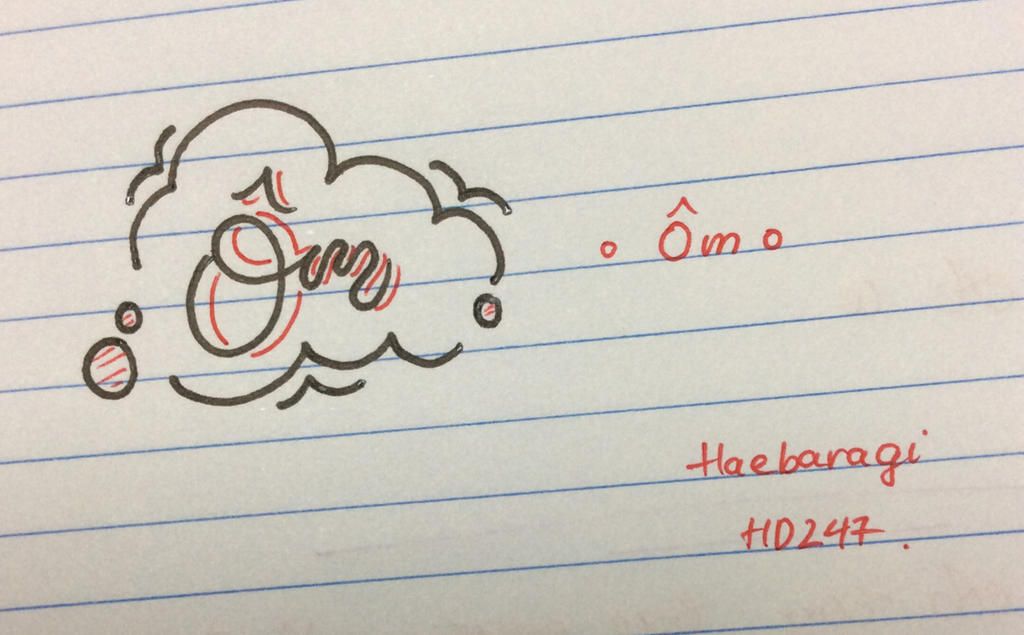 Ôm
Ôm
Haebaragi
HD247.